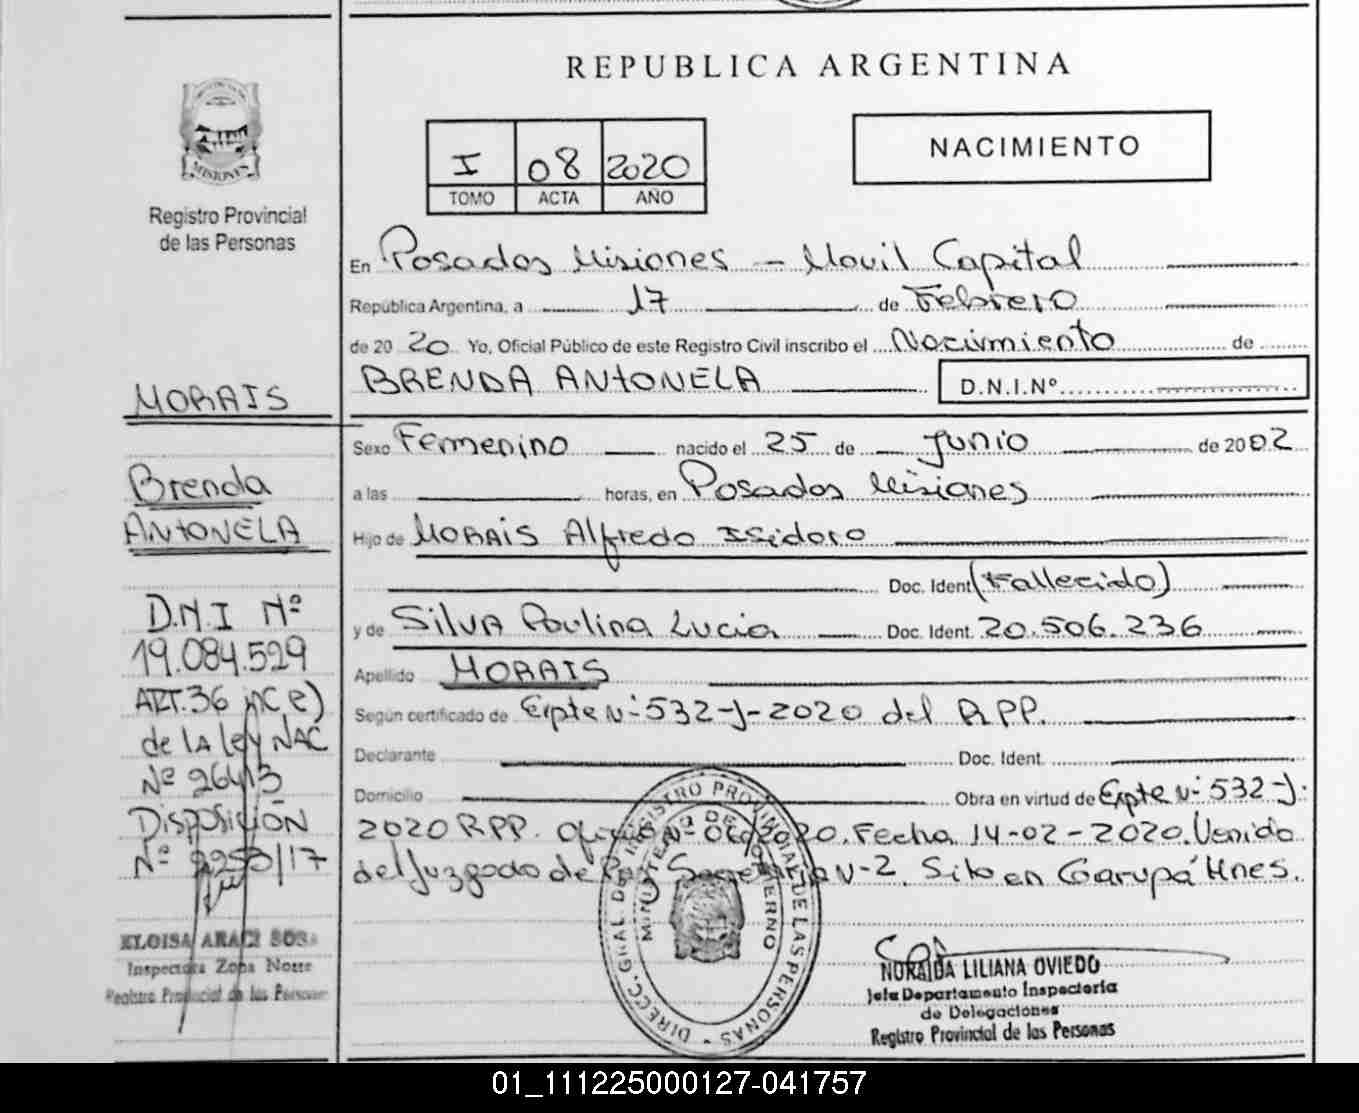 REPUBLICA ARGENTINA
MISIONES
Registro Provincial
de las Personas
I 08 2020
TOMO ACTA AÑO
NACIMIENTO
En Posadas Misiones - Movil Capital
República Argentina, a 17 de Febrero
de 20 20 Yo, Oficial Público de este Registro Civil inscribo el Nacimiento de
BRENDA ANTONELA D.N.I.Nº
Sexo Femenino nacido el 25 de Junio de 2002
a las horas, en Posadas Misiones
Hijo de MORAIS Alfredo Isidoro
Doc. Ident (Fallecido)
y de SILVA Paulina Lucia Doc. Ident. 20.506.236
Apellido MORAIS
Según certificado de Expte Nº 532-J-2020 del RPP.
Declarante Doc. Ident.
Domicilio Obra en virtud de Expte Nº 532-J-
2020 RPP. Oficio Nº 2020. Fecha 14-02-2020. Venido
del Juzgado de Paz Secretaria Nº 2. Sito en Garupá Mnes.
MORAIS
Brenda
ANTONELA
D.N.I Nº
19.084.529
ART. 36 inc e)
de LA Ley NAC
Nº 26413
Disposición
Nº 2253/17
ELOISA ARACI SOSA
Inspectora Zona Norte
Registro Provincial de las Personas
DIRECC. GRAL. DE REGISTRO PROVINCIAL DE LAS PERSONAS
MINISTERIO DE GOBIERNO
NORAIDA LILIANA OVIEDO
Jefa Departamento Inspectoria
de Delegaciones
Registro Provincial de las Personas
01_111225000127-041757